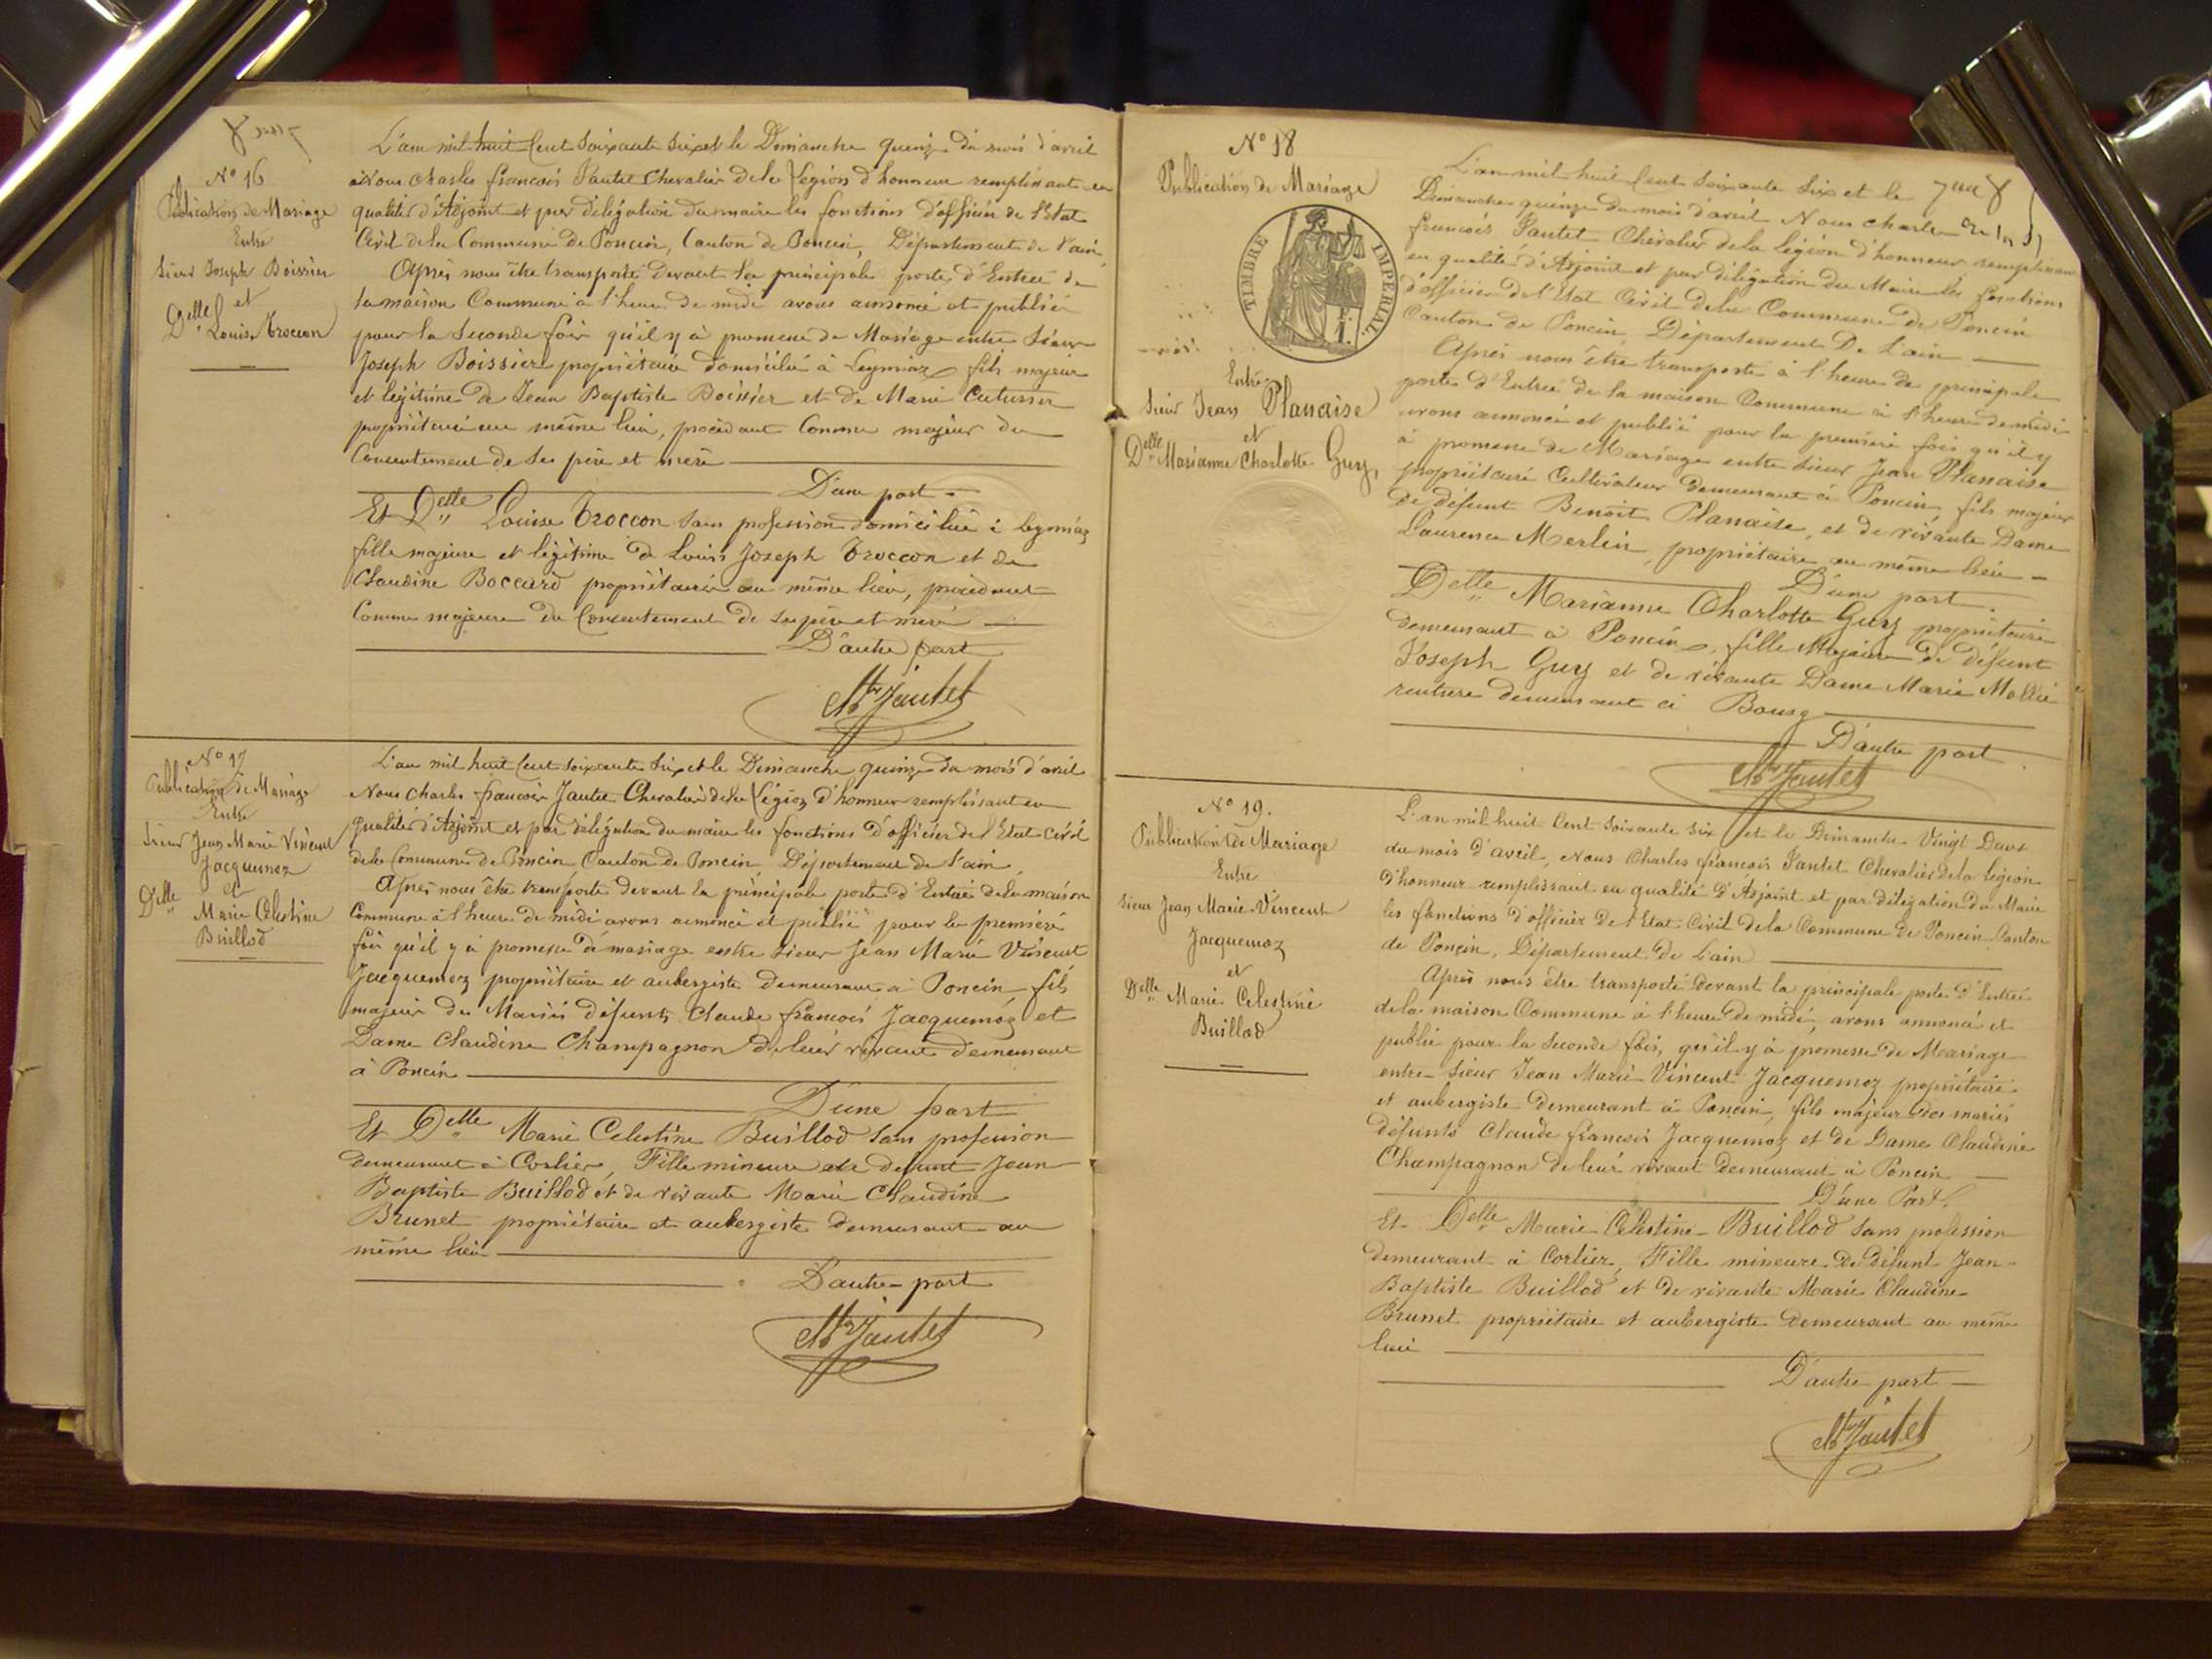 N° 16
Publication de Mariage
Entre
Sieur Joseph Boissier
et
Delle Louise Troccon
L'an mil huit Cent Soixante Six et le Dimanche quinze du mois d'avril
Nous Charles françois Jantet Chevalier de la Légion d'honneur remplissant en
qualité d'Adjoint et par délégation du maire les fonctions d'officier de l'Etat
Civil de la Commune de Poncin, Canton de Poncin, Département de l'ain
Après nous être transporté devant la principale porte d'Entrée de
la maison Commune à l'heure de midi avons annoncé et publié
pour la Seconde fois qu'il y à promesse de Mariage entre Sieur
Joseph Boissier propriétaire domicilié à Leymiaz fils majeur
et légitime de Jean Baptiste Boissier et de Marie
propriétaire au même lieu, procédant Comme majeur du
Consentement de Ses père et mère
D'une part
Et Delle Louise Troccon Sans profession domiciliée à Leymiaz
fille majeure et légitime de Louis Joseph Troccon et de
Claudine Boccard propriétaires au même lieu, procédant
Comme majeure du Consentement de Ses père et mère
D'autre part
Ch Jantet
N° 17
Publication de Mariage
Entre
Sieur Jean Marie Vincent
Jacquemoz
et
Delle Marie Celestine
Buillod
L'an mil huit Cent Soixante Six et le Dimanche quinze du mois d'avril
Nous Charles françois Jantet Chevalier de la Légion d'honneur remplissant en
qualité d'Adjoint et par délégation du maire les fonctions d'officier de l'Etat Civil
de la Commune de Poncin Canton de Poncin, Département de l'ain
Après nous être transporté devant la principale porte d'Entrée de la maison
Commune à l'heure de midi avons annoncé et publié pour la première
fois qu'il y à promesse de mariage entre Sieur Jean Marie Vincent
Jacquemoz propriétaire et aubergiste demeurant à Poncin fils
majeur des Mariés défunts Claude françois Jacquemoz et
Dame Claudine Champagnon de leur vivant demeurant
à Poncin
D'une part
Et Delle Marie Celestine Buillod Sans profession
demeurant à Corlier, Fille mineure de defunt Jean
Baptiste Buillod et de vivante Marie Claudine
Brunet propriétaire et aubergiste demeurant au
même lieu
D'autre part
Ch Jantet
N° 18
Publication de Mariage
TIMBRE IMPERIAL
Entre
Sieur Jean Planaise
et
Delle Marianne Charlotte Guy
L'an mil huit Cent Soixante Six et le
Dimanche quinze du mois d'avril Nous Charles
françois Jantet Chevalier de la Légion d'honneur remplissant
en qualité d'Adjoint et par délégation du Maire les fonctions
d'officier de l'Etat Civil de la Commune de Poncin
Canton de Poncin, Département De l'ain
Après nous être transporté à l'heure de principale
porte d'Entrée de la maison Commune à l'heure de midi
avons annoncé et publié pour la première fois qu'il y
à promesse de Mariage entre Sieur Jean Planaise
propriétaire Cultivateur demeurant à Poncin fils majeur
de défunt Benoit Planaise, et de vivante Dame
Laurence Merlin, propriétaire au même lieu
D'une part
Delle Marianne Charlotte Guy propriétaire
demeurant à Poncin, fille Majeure de défunt
Joseph Guy et de vivante Dame Marie Mollié
rentiere demeurant à Bourg
D'autre part
Ch Jantet
N° 19.
Publication de Mariage
Entre
Sieur Jean Marie Vincent
Jacquemoz
et
Delle Marie Celestine
Buillod
L'an mil huit Cent Soixante Six et le Dimanche Vingt Deux
du mois d'avril, Nous Charles françois Jantet Chevalier de la légion
d'honneur remplissant en qualité d'Adjoint et par délégation du Maire
les fonctions d'officier de l'Etat Civil de la Commune de Poncin Canton
de Poncin, Département de L'ain
Après nous être transporté devant la principale porte d'Entrée
de la maison Commune à l'heure de midi, avons annoncé et
publié pour la Seconde fois, qu'il y à promesse de Mariage
entre Sieur Jean Marie Vincent Jacquemoz propriétaire
et aubergiste demeurant à Poncin, fils majeur des mariés
défunts Claude françois Jacquemoz et de Dame Claudine
Champagnon de leur vivant demeurant à Poncin
D'une Part
Et Delle Marie Celestine Buillod Sans profession
demeurant à Corlier, Fille mineure de défunt Jean
Baptiste Buillod et de vivante Marie Claudine
Brunet propriétaire et aubergiste demeurant au même
lieu
D'autre part
Ch Jantet